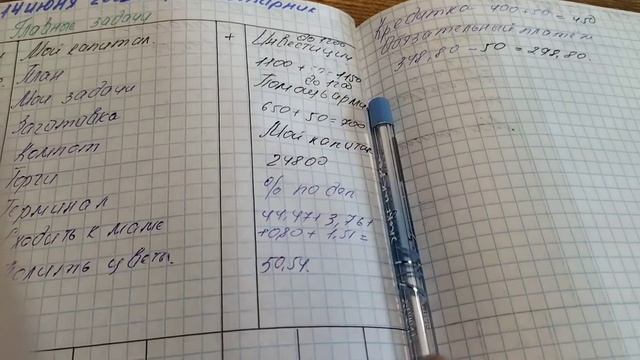 14 июня
Главные задачи
Мой капитал.
План
Мои задачи
Заготовка
Компот
Торги
Терминал
Сходить к маме
Полить цветы.
+
до 1200
Инвестиции
1100 + 50 = 1150
до 1200
Помощь армии
650 + 50 = 700
Мой капитал
24800
% по деп
44,47 + 3,76 +
+ 0,80 + 1,51 =
50,54.
Кредитка 400 + 50 = 450
Обязательный платёж
348,80 - 50 = 298,80.